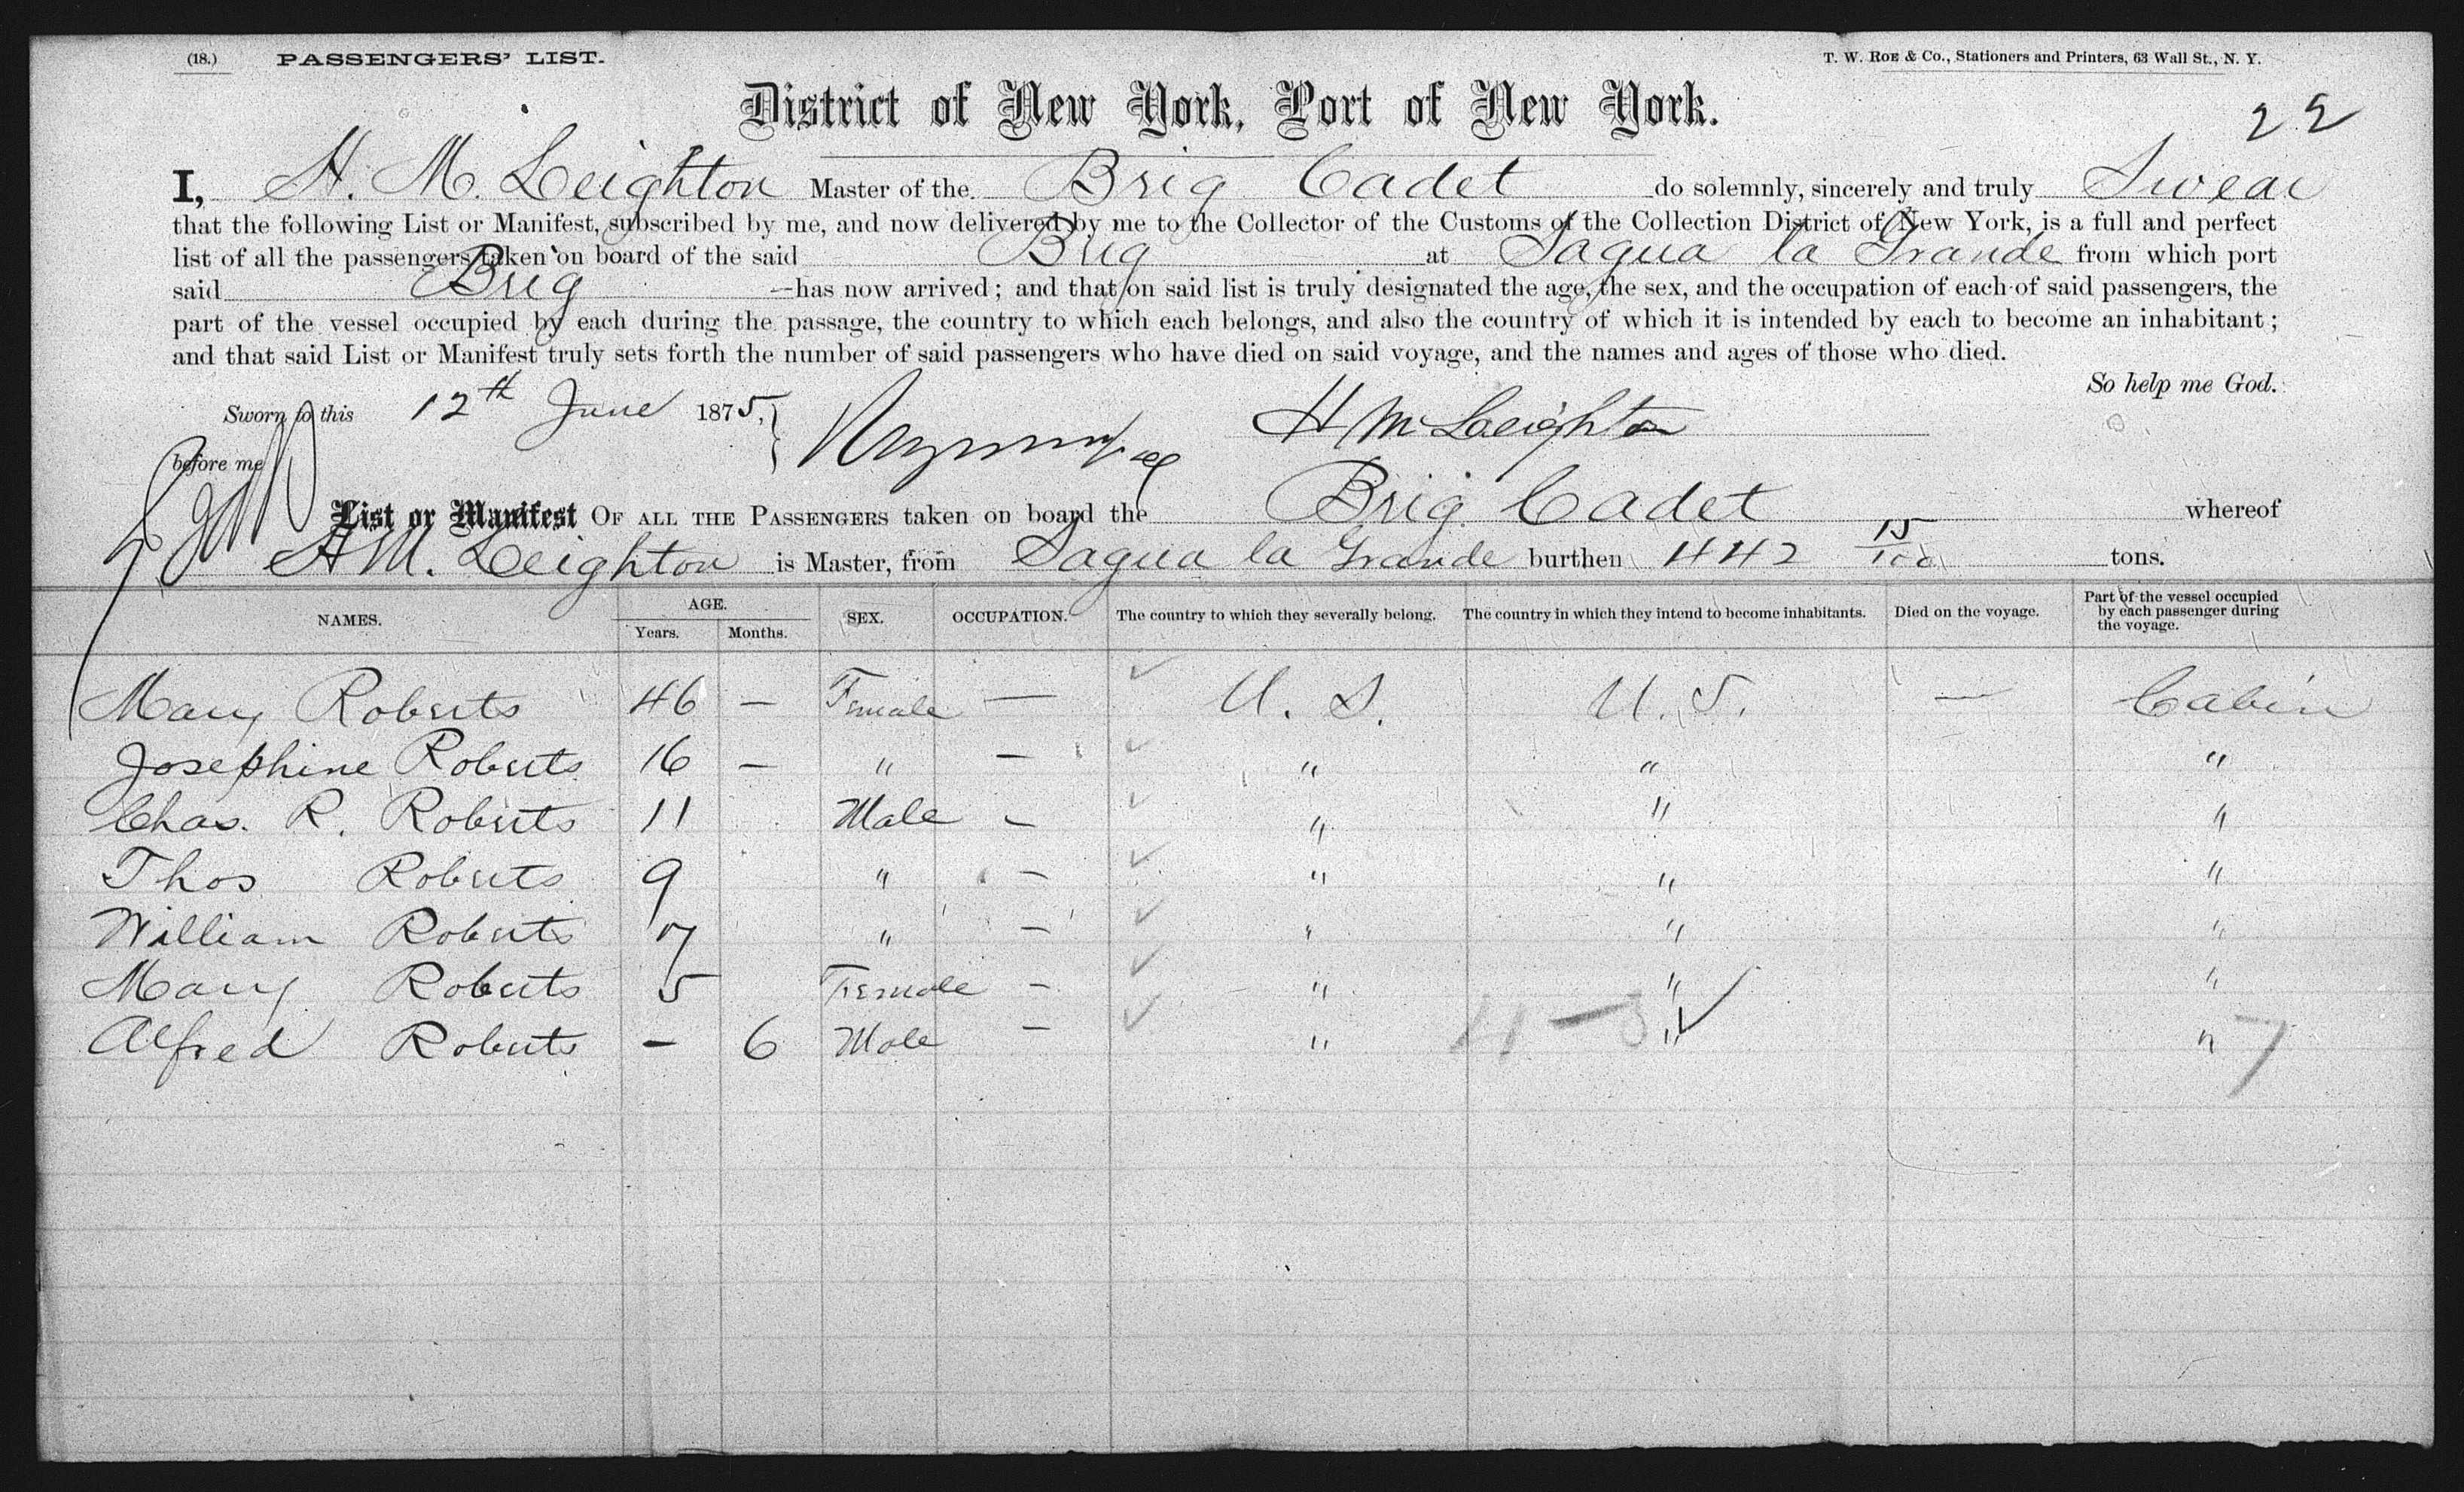 (18.) PASSENGERS' LIST. T. W. ROE & Co., Stationers and Printers, 63 Wall St., N. Y.
District of New York, Port of New York.
22
I, H. M. Leighton Master of the Brig Cadet do solemnly, sincerely and truly Swear
that the following List or Manifest, subscribed by me, and now delivered by me to the Collector of the Customs of the Collection District of New York, is a full and perfect
list of all the passengers taken on board of the said Brig at Sagua la Grande from which port
said Brig has now arrived; and that on said list is truly designated the age, the sex, and the occupation of each of said passengers, the
part of the vessel occupied by each during the passage, the country to which each belongs, and also the country of which it is intended by each to become an inhabitant;
and that said List or Manifest truly sets forth the number of said passengers who have died on said voyage, and the names and ages of those who died.
So help me God.
Sworn to this 12th June 1875, H M Leighton
before me
List or Manifest OF ALL THE PASSENGERS taken on board the Brig Cadet whereof
H M. Leighton is Master, from Sagua la Grande burthen 442 15/100 tons.
NAMES. AGE. Years. Months. SEX. OCCUPATION. The country to which they severally belong. The country in which they intend to become inhabitants. Died on the voyage. Part of the vessel occupied by each passenger during the voyage.
Mary Roberts 46 — Female — U. S. U. S. — Cabin
Josephine Roberts 16 — " — " " "
Chas. R. Roberts 11 Male — " " "
Thos Roberts 9 " — " " "
William Roberts 7 " — " " "
Mary Roberts 5 Female — " " "
Alfred Roberts — 6 Male — " " " 7